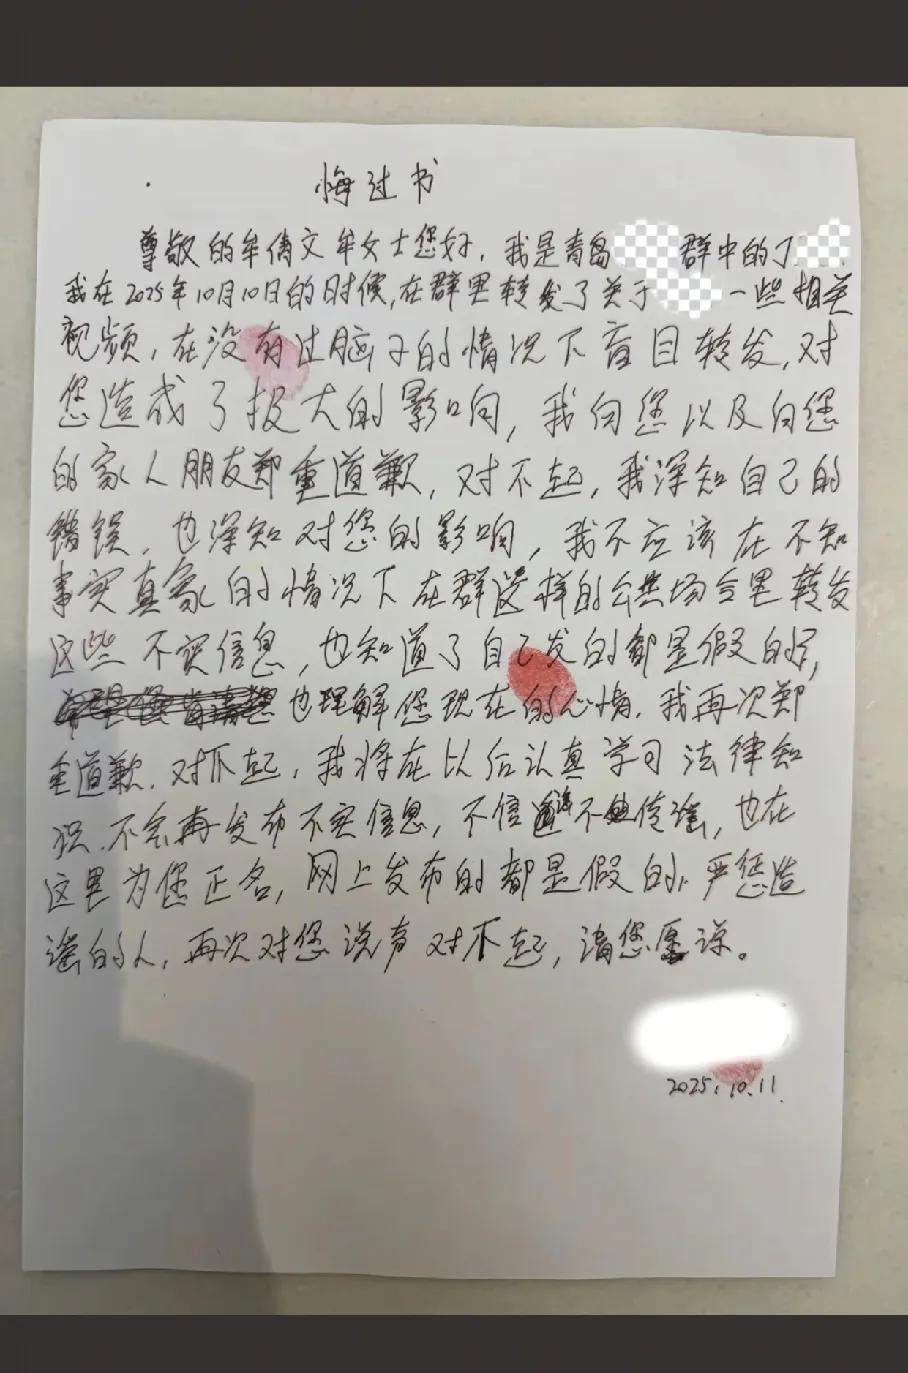 悔过书
尊敬的牟倩文牟女士您好,我是青岛群中的丁
我在2025年10月10日的时候,在群里转发了关于一些相关
视频,在没有过脑子的情况下盲目转发,对
您造成了极大的影响,我向您以及向您
的家人朋友郑重道歉,对不起,我深知自己的
错误,也深知对您的影响,我不应该在不知
事实真象的情况下在群这样的公共场合里转发
这些不实信息,也知道了自己发的都是假的,
也理解您现在的心情.我再次郑
重道歉.对不起,我将在以后认真学习法律知
识.不会再发布不实信息,不信谣不传谣,也在
这里为您正名,网上发布的都是假的,严惩造
谣的人,再次对您说声对不起,请您原谅。
2025.10.11.